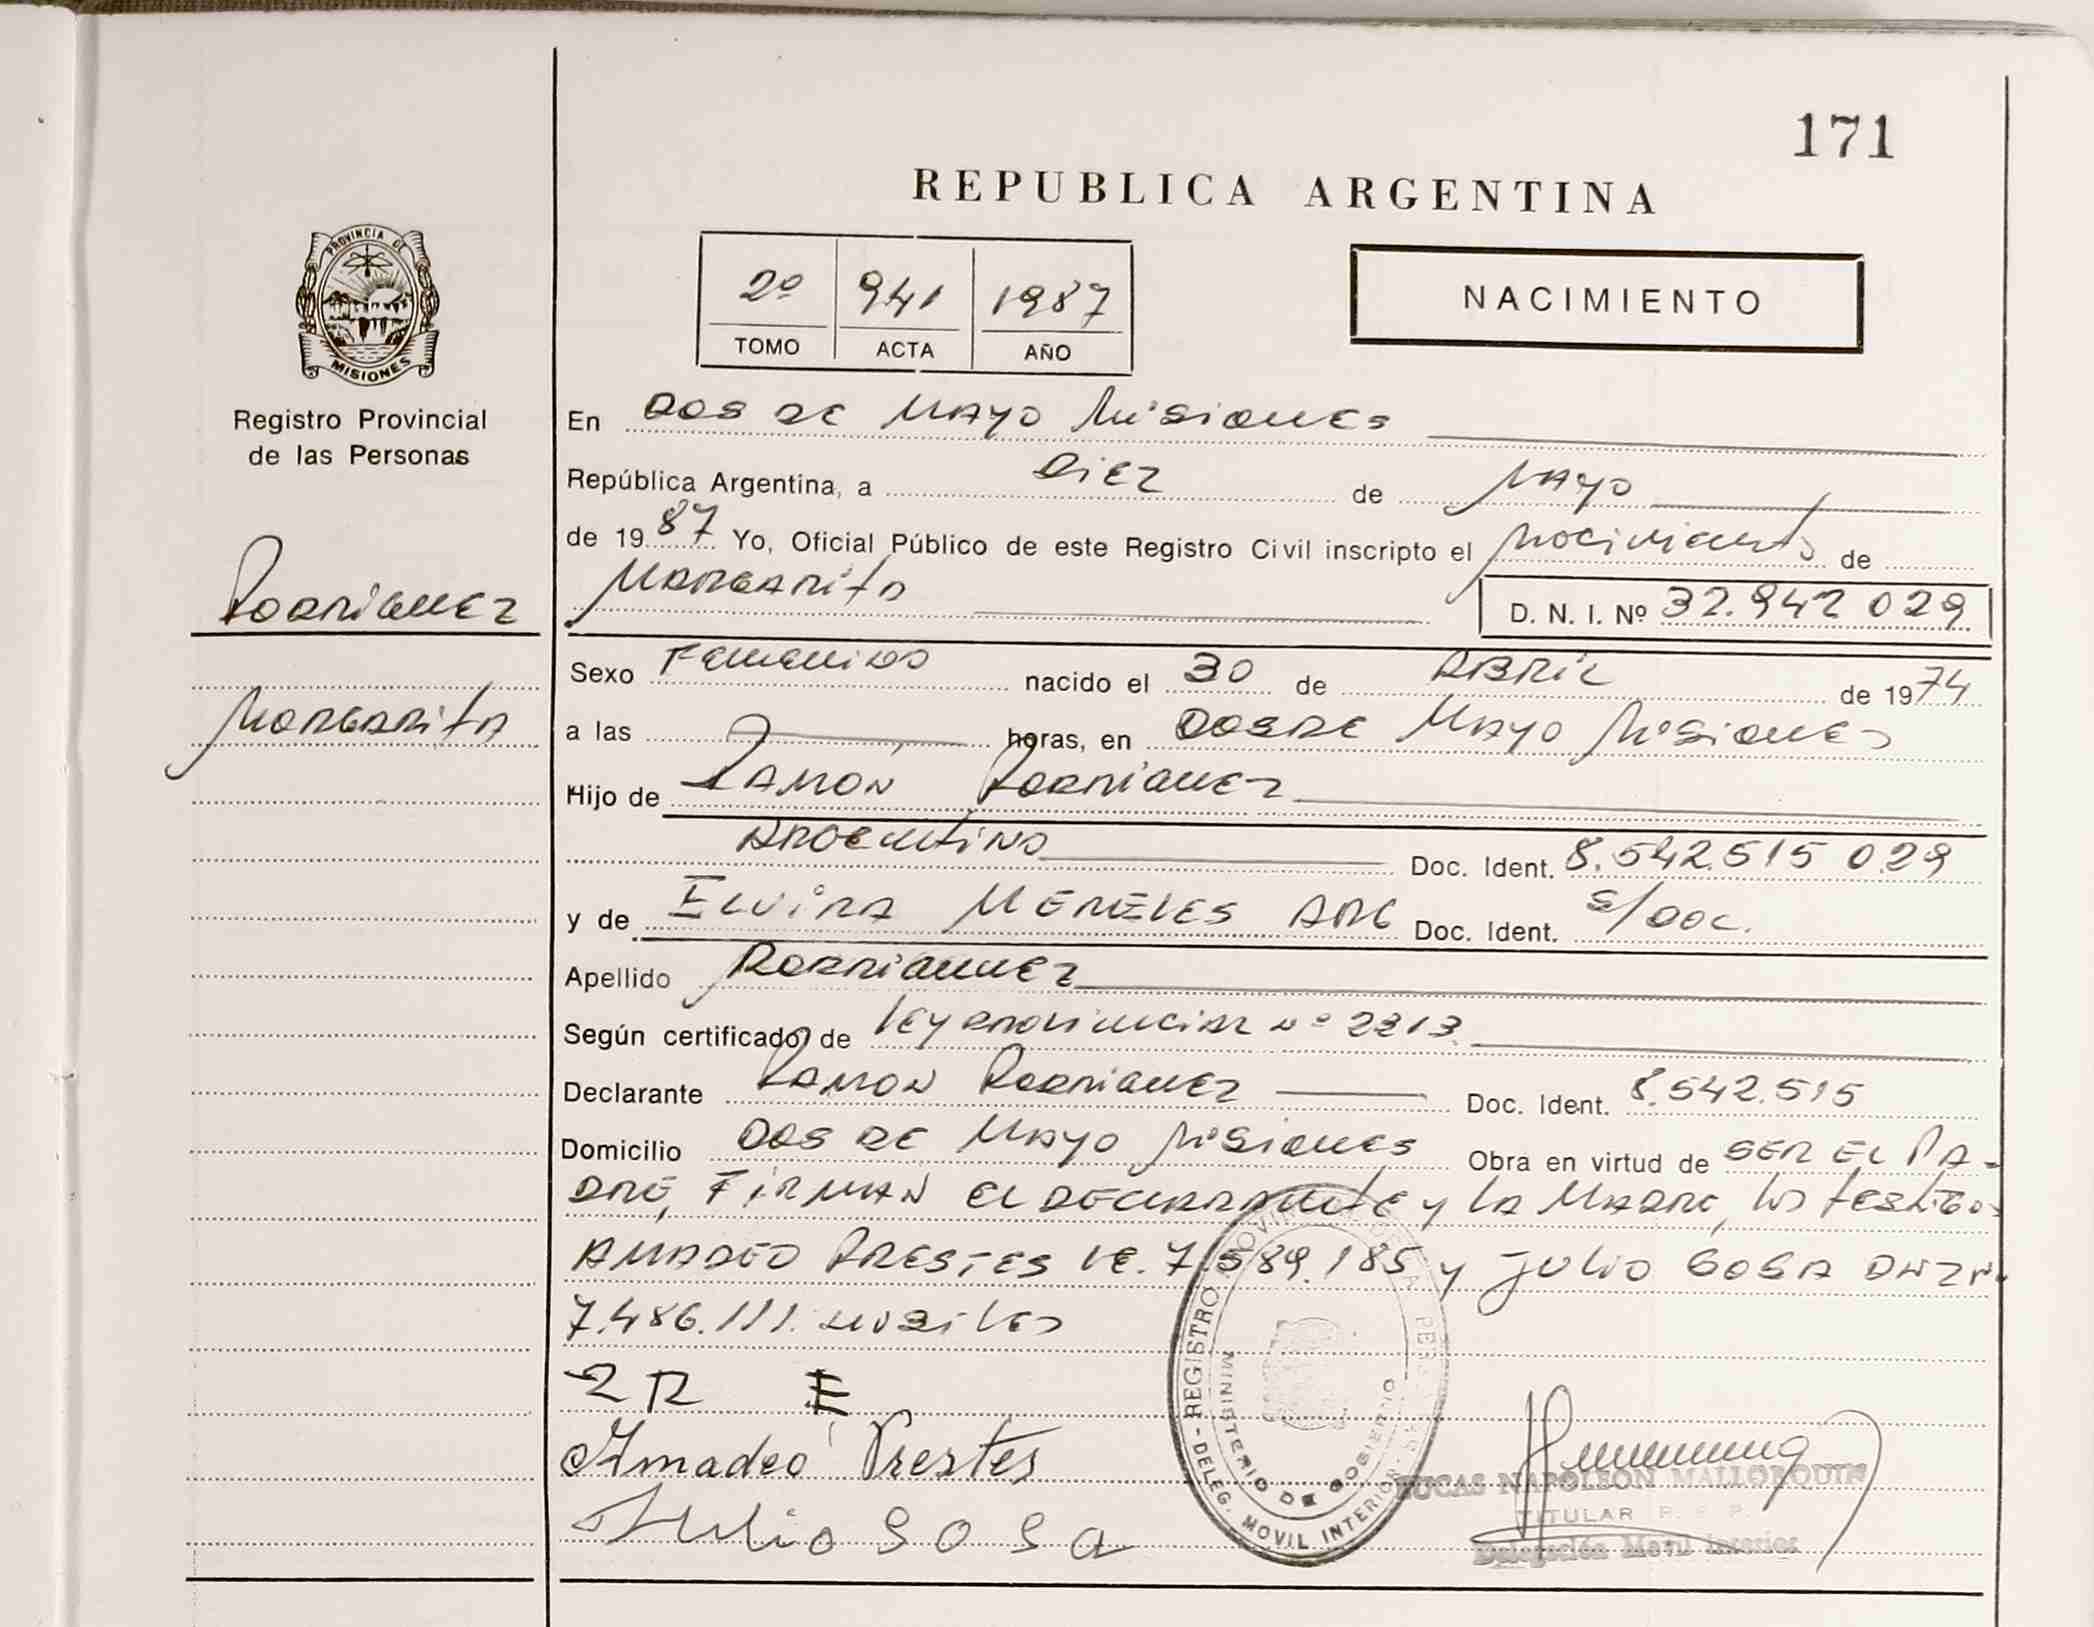 171
REPUBLICA ARGENTINA
PROVINCIA DE
MISIONES
Registro Provincial
de las Personas
2º 941 1987
TOMO ACTA AÑO
NACIMIENTO
En DOS DE MAYO MISIONES
República Argentina, a DIEZ de MAYO
de 1987 Yo, Oficial Público de este Registro Civil inscripto el Nacimiento de
MARGARITA D. N. I. Nº 32.942 029
RODRIGUEZ
Sexo FEMENINO nacido el 30 de ABRIL de 1974
MARGARITA
a las horas, en DOS DE MAYO MISIONES
Hijo de RAMON RODRIGUEZ
ARGENTINO Doc. Ident. 8.542.515 029
y de ELVIRA MEMELES ARG Doc. Ident. S/DOC.
Apellido RODRIGUEZ
Según certificado de LEY PROVINCIAL Nº 2213
Declarante RAMON RODRIGUEZ Doc. Ident. 8.542.515
Domicilio DOS DE MAYO MISIONES Obra en virtud de SER EL PA-
DRE, FIRMAN EL DECLARANTE y LA MADRE, los testigos
AMADEO PRESTES LE. 7.589.185 y JULIO SOSA DNI Nº
7.486.111.
2R E
Amadeo Prestes
Julio SOSA
- REGISTRO PERSONAS - DELEG. MOVIL INTERIOR
MINISTERIO DE GOBIERNO
LUCAS NAPOLEON MALLORQUIN
TITULAR R. P. P.
Delegación Movil Interior